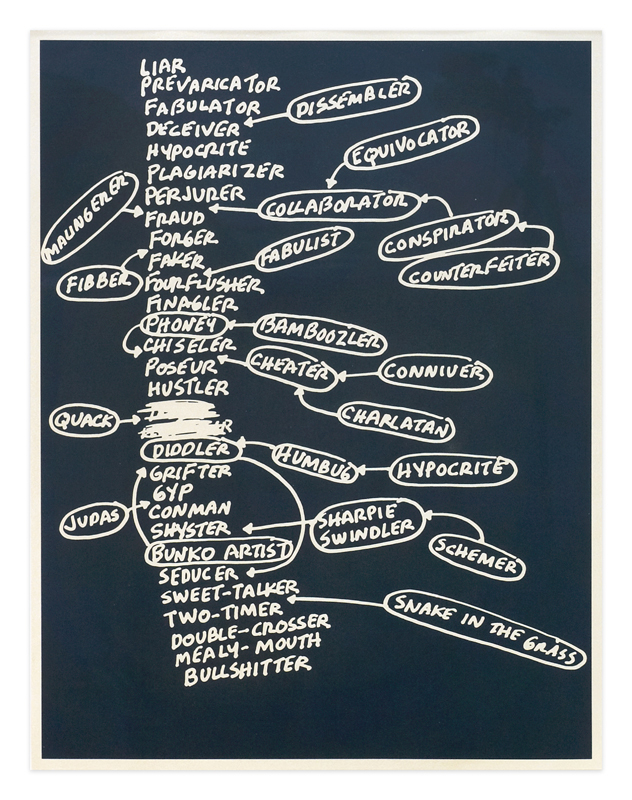 LIAR
PREVARICATOR
FABULATOR
DISSEMBLER
DECEIVER
EQUIVOCATOR
HYPOCRITE
PLAGIARIZER
PERJURER
COLLABORATOR
MALINGERER
FRAUD
CONSPIRATOR
FORGER
FABULIST
FAKER
COUNTERFEITER
FIBBER
FOURFLUSHER
FINAGLER
PHONEY
BAMBOOZLER
CHISELER
POSEUR
CHEATER
CONNIVER
HUSTLER
QUACK
CHARLATAN
DIDDLER
HUMBUG
HYPOCRITE
GRIFTER
GYP
JUDAS
CONMAN
SHYSTER
SHARPIE
SWINDLER
BUNKO ARTIST
SCHEMER
SEDUCER
SWEET-TALKER
TWO-TIMER
SNAKE IN THE GRASS
DOUBLE-CROSSER
MEALY-MOUTH
BULLSHITTER